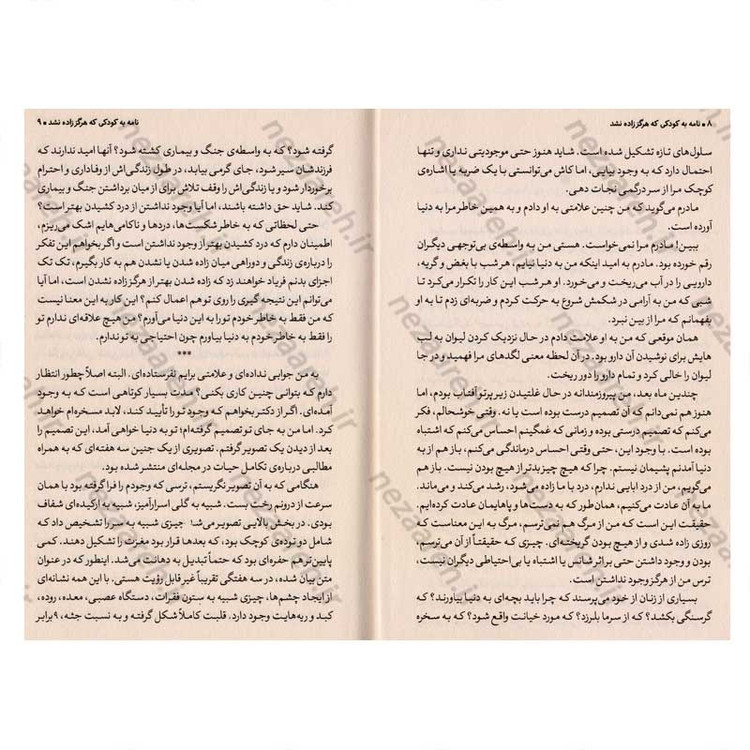 ۸ ● نامه به کودکی که هرگز زاده نشد
سلول‌های تازه تشکیل شده است. شاید هنوز حتی موجودیتی نداری و تنها
احتمال دارد که به وجود بیایی، اما کاش می‌توانستی با یک ضربه یا اشاره‌ی
کوچک مرا از سردرگمی نجات دهی.
مادرم می‌گوید که من چنین علامتی به او دادم و به همین خاطر مرا به دنیا
آورده است.
ببین! مادرم مرا نمی‌خواست. هستی من به واسطه‌ی بی‌توجهی دیگران
رقم خورده بود. مادرم به امید اینکه من به دنیا نیایم، هر شب با بغض و گریه،
دارویی را در آب می‌ریخت و می‌خورد. او هر شب این کار را تکرار می‌کرد تا
شبی که من به آرامی در شکمش شروع به حرکت کردم و ضربه‌ای زدم تا به او
بفهمانم که مرا از بین نبرد.
همان موقعی که من به او علامت دادم در حال نزدیک کردن لیوان به لب
هایش برای نوشیدن آن دارو بود. در آن لحظه معنی لگدهای مرا فهمید و در جا
لیوان را خالی کرد و تمام دارو را دور ریخت.
چندین ماه بعد، من پیروزمندانه در حال غلتیدن زیر پرتو آفتاب بودم، اما
هنوز هم نمی‌دانم که آن تصمیم درست بوده است یا نه. وقتی خوشحالم، فکر
می‌کنم که تصمیم درستی بوده و زمانی که غمگینم احساس می‌کنم که اشتباه
بوده است. با وجود این، حتی وقتی احساس درماندگی می‌کنم، باز هم از به
دنیا آمدنم پشیمان نیستم. چرا که هیچ چیز بدتر از هیچ بودن نیست. باز هم
می‌گویم، من از درد ابایی ندارم، درد با ما زاده می‌شود، رشد می‌کند و می‌ماند.
ما به آن عادت می‌کنیم، همان‌طور که به دست‌ها و پاهایمان عادت کرده‌ایم.
حقیقت این است که من از مرگ هم نمی‌ترسم، مرگ به این معناست که
روزی زاده شدی و از هیچ بودن گریخته‌ای. چیزی که حقیقتاً از آن می‌ترسم،
بودن و وجود داشتن حتی بر اثر شانس یا اشتباه یا بی‌احتیاطی دیگران نیست،
ترس من از هرگز وجود نداشتن است.
بسیاری از زنان از خود می‌پرسند که چرا باید بچه‌ای به دنیا بیاورند؟ که
گرسنگی بکشد؟ که از سرما بلرزد؟ که مورد خیانت واقع شود؟ که به سخره
نامه به کودکی که هرگز زاده نشد ● ۹
گرفته شود؟ که به واسطه‌ی جنگ و بیماری کشته شود؟ آنها امید ندارند که
فرزندشان سیر شود، جای گرمی بیابد، در طول زندگی‌اش از وفاداری و احترام
برخوردار شود و یا زندگی‌اش را وقف تلاش برای از میان برداشتن جنگ و بیماری
کند. شاید حق داشته باشند، اما آیا وجود نداشتن از درد کشیدن بهتر است؟
حتی لحظاتی که به خاطر شکست‌ها، دردها و ناکامی‌هایم اشک می‌ریزم،
اطمینان دارم که درد کشیدن بهتر از وجود نداشتن است و اگر بخواهم این تفکر
را درباره‌ی زندگی و دوراهی میان زاده شدن یا نشدن هم به کار بگیرم، تک تک
اجزای بدنم فریاد خواهند زد که زاده شدن بهتر از هرگز زاده نشدن است، اما آیا
می‌توانم این نتیجه گیری را روی تو هم اعمال کنم؟ این کار به این معنا نیست
که من فقط به خاطر خودم تو را به این دنیا می‌آورم؟ من هیچ علاقه‌ای ندارم تو
را فقط به خاطر خودم به دنیا بیاورم چون احتیاجی به تو ندارم.
***
به من جوابی نداده‌ای و علامتی برایم نفرستاده‌ای. البته اصلاً چطور انتظار
دارم که بتوانی چنین کاری بکنی؟ مدت بسیار کوتاهی است که به وجود
آمده‌ای. اگر از دکتر بخواهم که وجود تو را تأیید کند، لابد مسخره‌ام خواهد
کرد. اما من به جای تو تصمیم گرفته‌ام؛ تو به دنیا خواهی آمد، این تصمیم را
بعد از دیدن یک تصویر گرفتم. تصویری از یک جنین سه هفته‌ای که به همراه
مطالبی درباره‌ی تکامل حیات در مجله‌ای منتشر شده بود.
هنگامی که به آن تصویر نگریستم، ترسی که وجودم را فرا گرفته بود با همان
سرعت از درونم رخت بست. شبیه به گلی اسرارآمیز، شبیه به ارکیده‌ای شفاف
بودی. در بخش بالایی تصویر می‌شد چیزی شبیه به سر را تشخیص داد که
شامل دو توده‌ی کوچک بود، که بعدها قرار بود مغزت را تشکیل دهند. کمی
پایین‌تر هم حفره‌ای بود که حتماً تبدیل به دهانت می‌شد. اینطور که در عنوان
متن بیان شده، در سه هفتگی تقریباً غیر قابل رؤیت هستی. با این همه نشانه‌ای
از ایجاد چشم‌ها، چیزی شبیه به ستون فقرات، دستگاه عصبی، معده، روده،
کبد و ریه‌هایت وجود دارد. قلبت کاملاً شکل گرفته و به نسبت جثه، ۹ برابر
nezaareh.ir